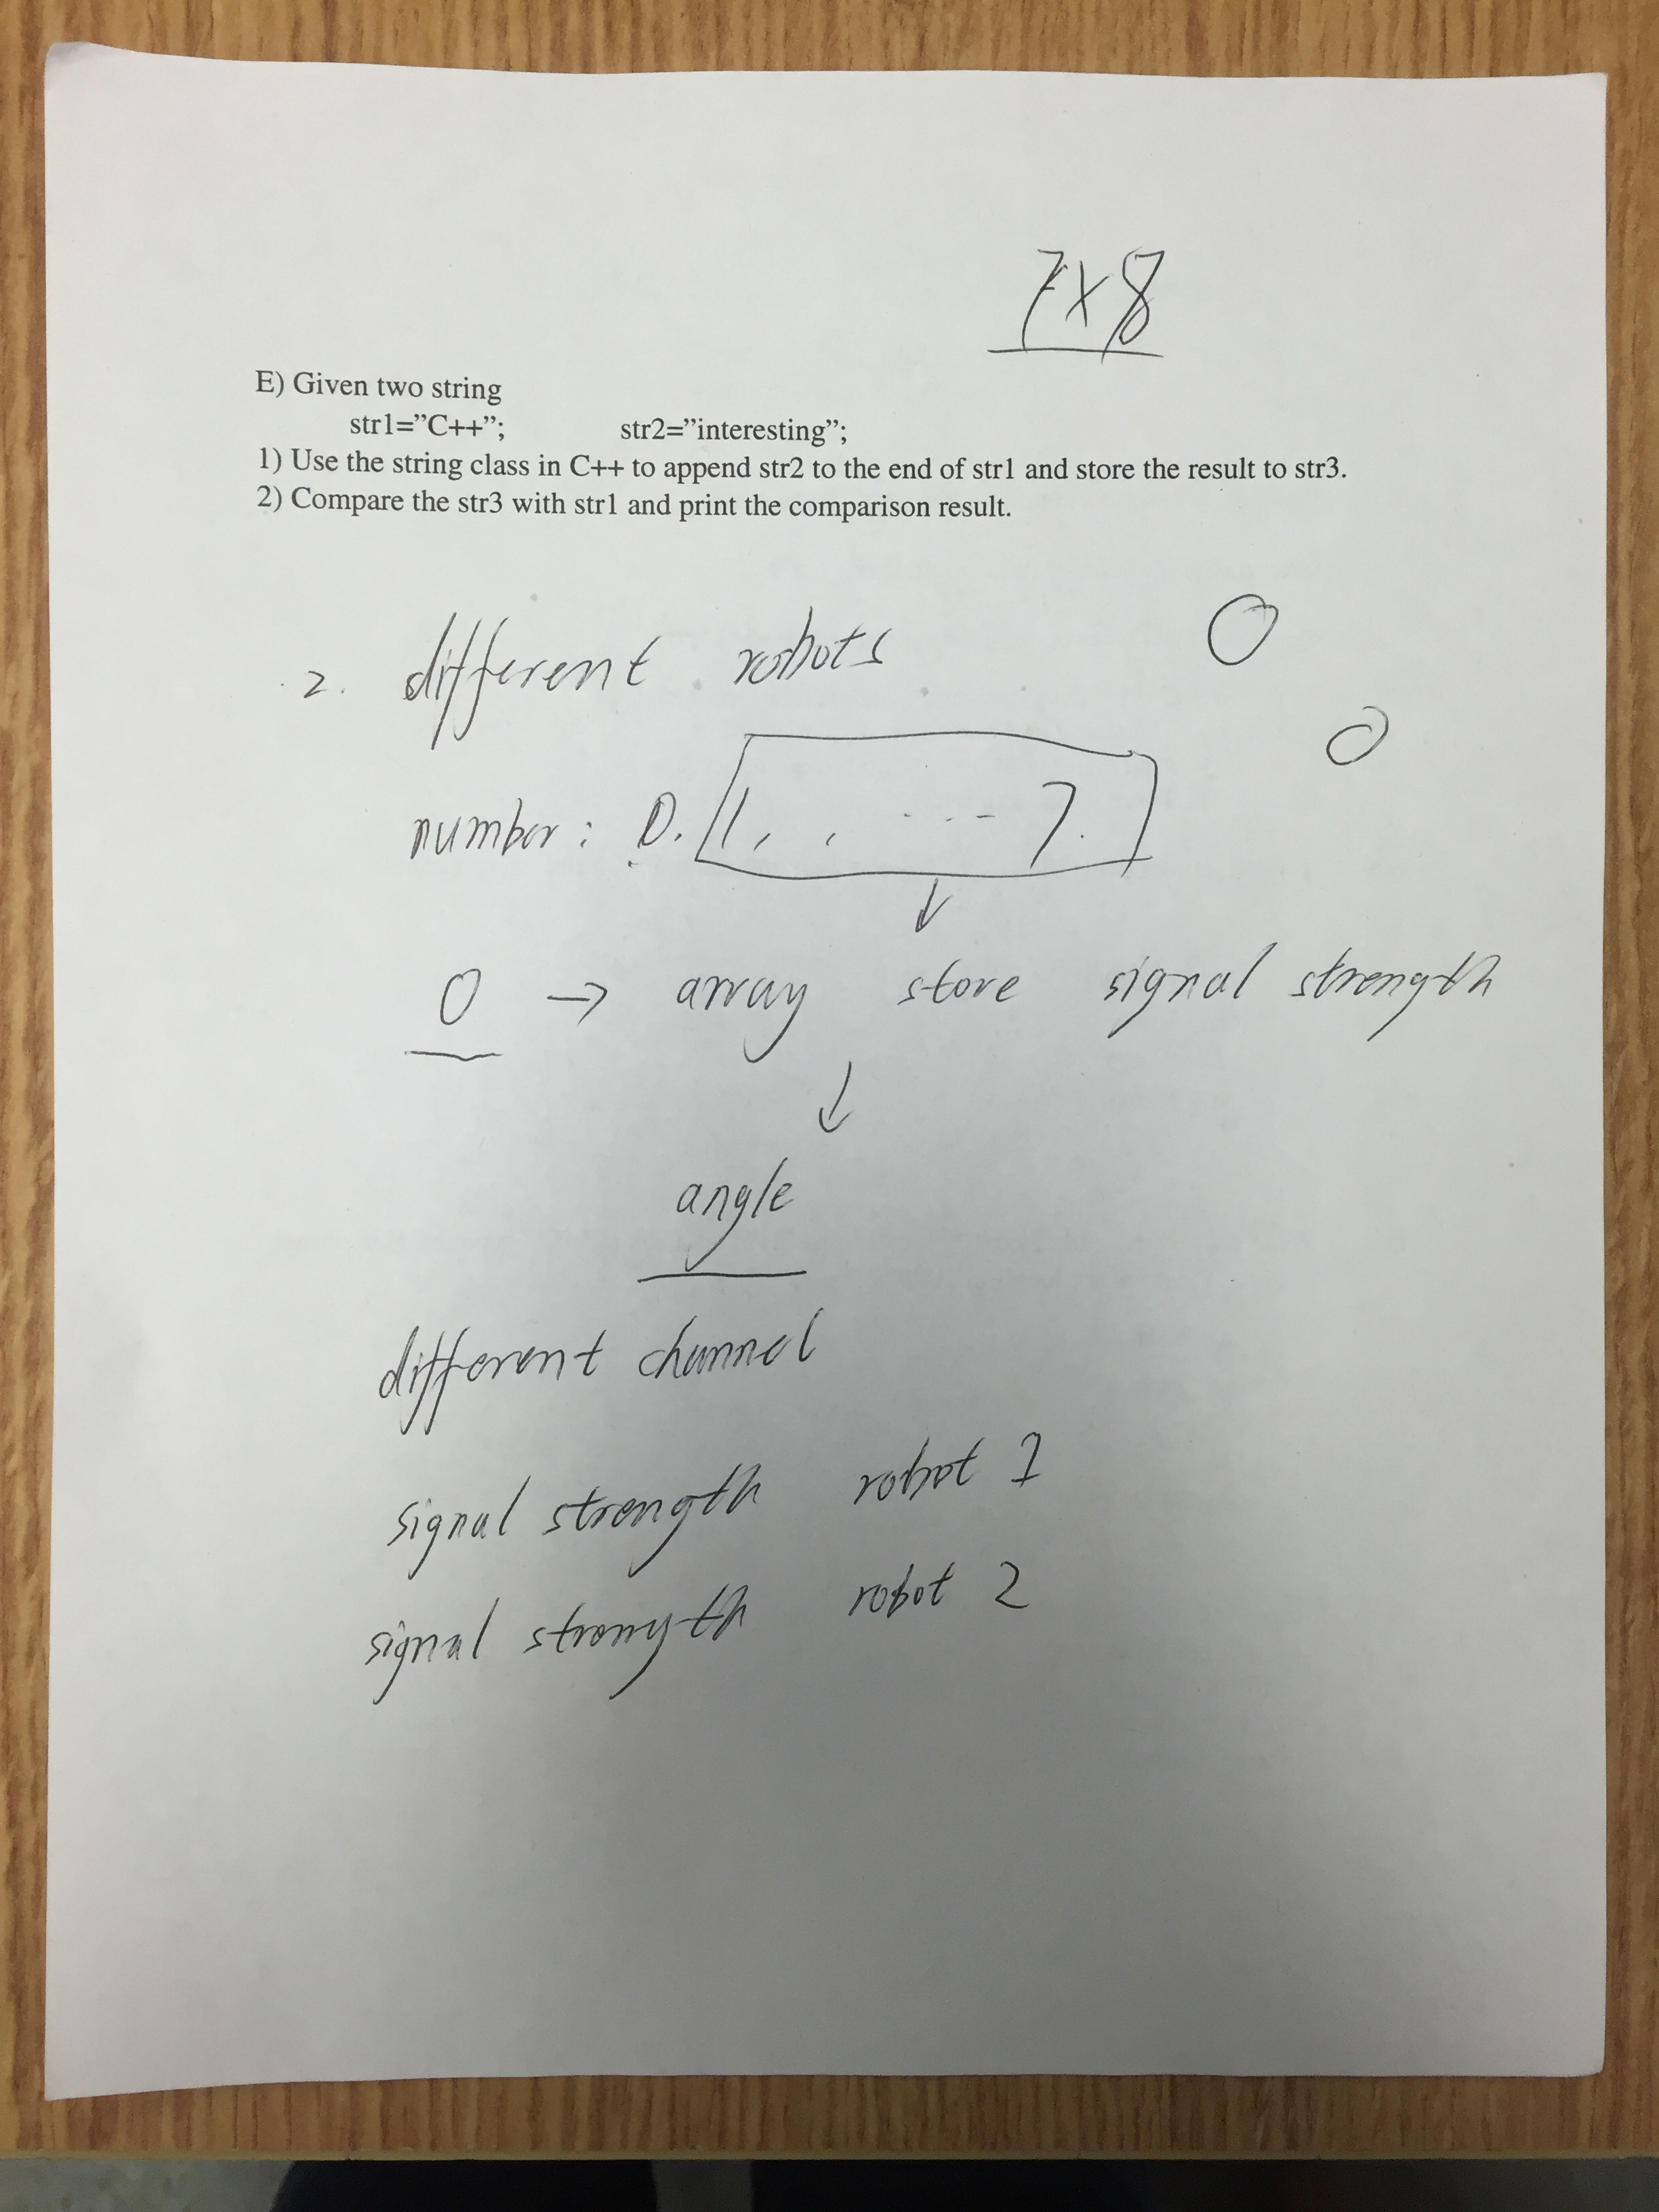 7x8
E) Given two string
str1=”C++”; str2=”interesting”;
1) Use the string class in C++ to append str2 to the end of str1 and store the result to str3.
2) Compare the str3 with str1 and print the comparison result.
2. different robots
number: 0. 1, , ... - 7.
0 → array store signal strength
↓
angle
different channel
signal strength robot 1
signal strength robot 2